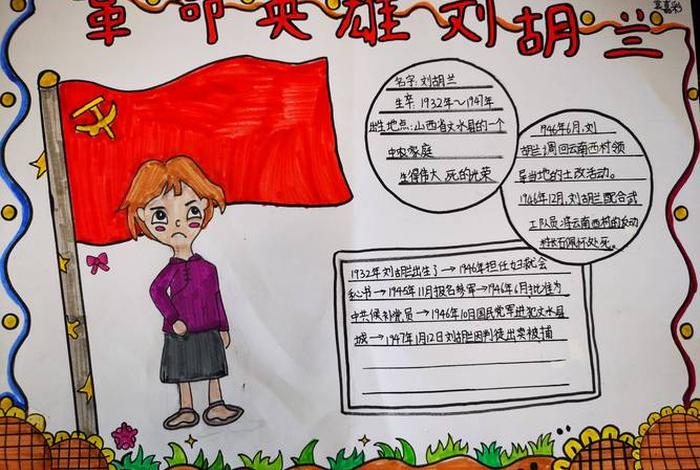 革命英雄刘胡兰
名字:刘胡兰
生卒:1932年~1947年
出生地点:山西省文水县的一个
中农家庭
生得伟大 死的光荣
1946年6月,刘
胡兰调回云南西村领
导当地的土改活动。
1946年12月,刘胡兰配合武
工队员,将云南西村的反动
村长石佩怀处死。
1932年刘胡兰出生了→1946年担任妇救会
秘书→1945年11月报名参军→1946年6月,批准为
中共候补党员→1946年10月国民党军进犯文水县
城→1947年1月12日刘胡兰因叛徒出卖被捕